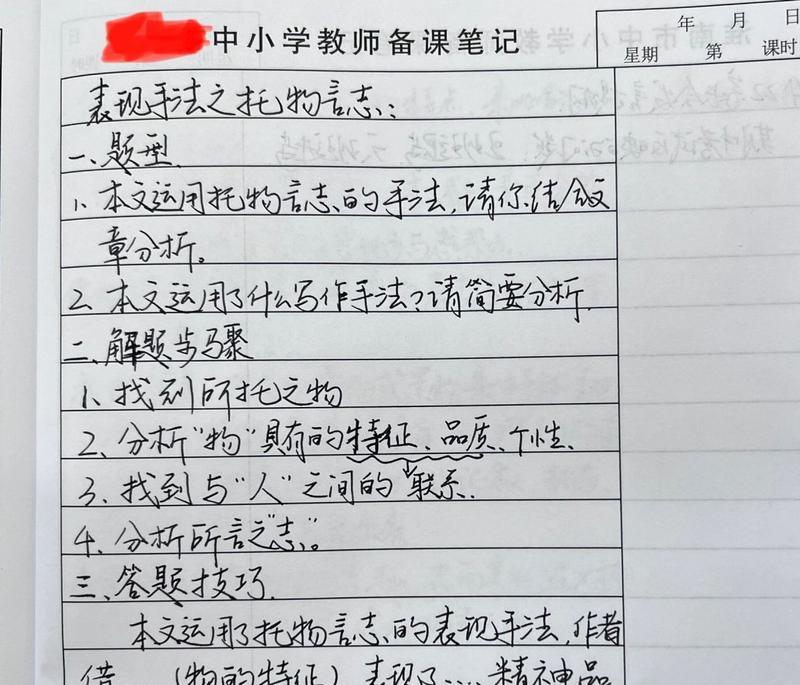 中小学教师备课笔记
年 月 日
星期 第 课时
表现手法之托物言志:
一、题型
1、本文运用托物言志的手法,请你结合文
章分析。
2、本文运用了什么写作手法?请简要分析.
二、解题步骤
1、找到所托之物
2、分析“物”具有的特征、品质、个性、
3、找到与“人”之间的联系.
4、分析所言之“志”。
三、答题技巧.
本文运用了托物言志的表现手法,作者
借 (物的特征)表现了.... 精神品